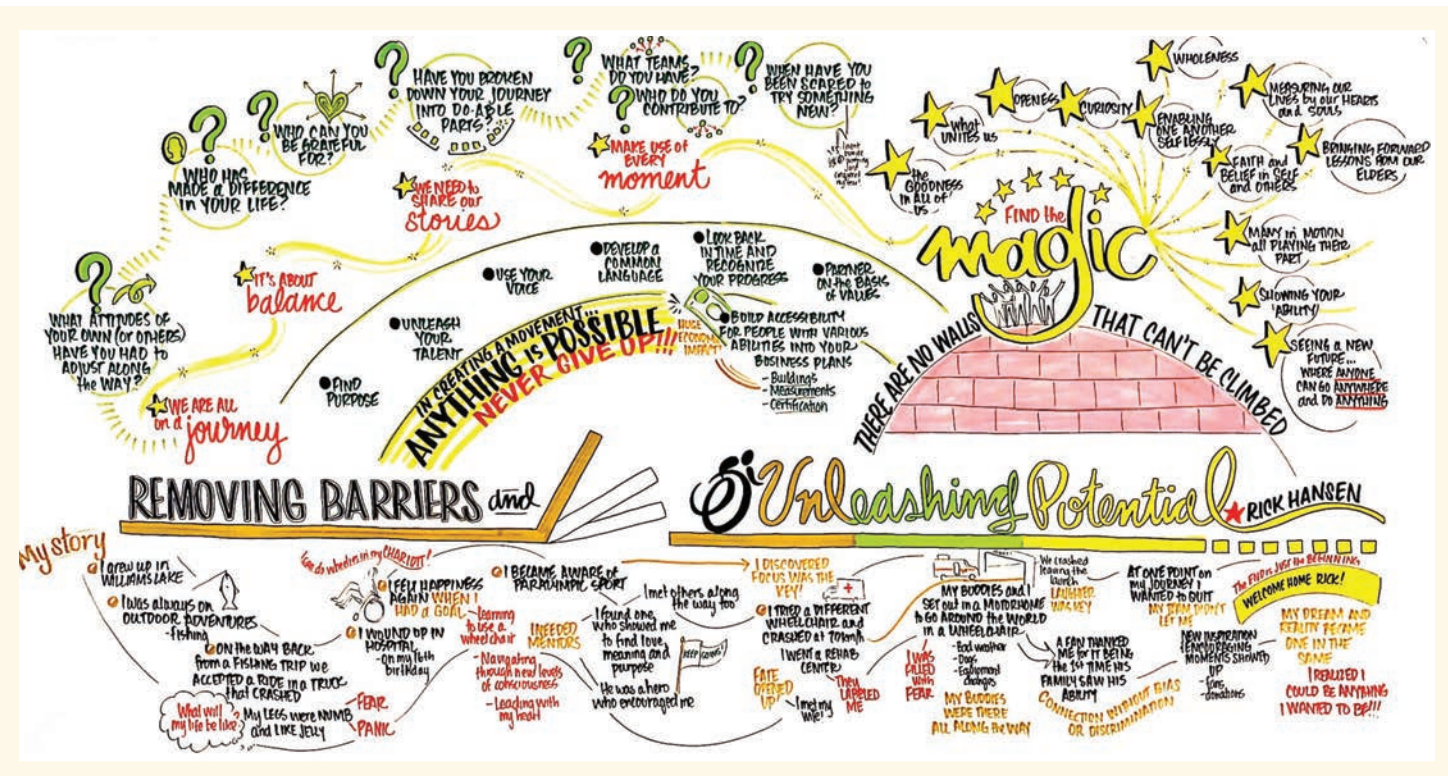 WHAT ATTITUDES OF
YOUR OWN (OR OTHERS)
HAVE YOU HAD TO
ADJUST ALONG
the WAY?
WHO HAS
MADE a DIFFERENCE
IN YOUR LIFE?
WHO CAN YOU
BE GRATEFUL
FOR?
HAVE YOU BROKEN
DOWN YOUR JOURNEY
INTO DO-ABLE
PARTS?
WHAT TEAMS
DO YOU HAVE?
WHO DO YOU
CONTRIBUTE TO?
WHEN HAVE YOU
BEEN SCARED to
TRY SOMETHING
NEW?
WE ARE ALL
on a journey
IT'S ABOUT
balance
WE NEED to
SHARE our
stories
MAKE USE of
EVERY
moment
FIND
PURPOSE
UNLEASH
YOUR
TALENT
USE YOUR
VOICE
DEVELOP a
COMMON
LANGUAGE
LOOK BACK
IN TIME AND
RECOGNIZE
YOUR PROGRESS
PARTNER
ON the BASIS
OF VALUES
BUILD ACCESSIBILITY
FOR PEOPLE WITH VARIOUS
ABILITIES INTO YOUR
BUSINESS PLANS
- Buildings
- Measurements
- Certification
HUGE
ECONOMIC
IMPACT!
IN CREATING A MOVEMENT...
ANYTHING is POSSIBLE
NEVER GIVE UP!!!
FIND the
magic
the
GOODNESS
IN ALL OF
US
What
UNITES us
OPENESS
CURIOSITY
WHOLENESS
ENABLING
ONE ANOTHER
SELFLESSLY
MEASURING OUR
LIVES by OUR HEARTS
and SOULS
FAITH and
BELIEF in SELF
and OTHERS
BRINGING FORWARD
LESSONS FROM OUR
ELDERS
MANY in MOTION
all PLAYING THEIR
PART
SHOWING YOUR
'ABILITY'
SEEING a NEW
FUTURE...
WHERE ANYONE
CAN GO ANYWHERE
and DO ANYTHING
THERE ARE NO WALLS
THAT CAN'T BE CLIMBED
REMOVING BARRIERS and
Unleashing Potential
RICK HANSEN
My story
I grew up in
WILLIAMS LAKE
I was always on
OUTDOOR ADVENTURES
- fishing
ON the WAY BACK
from a FISHING TRIP we
ACCEPTED a RIDE in a TRUCK
that CRASHED
What will
my life be like
My LEGS were NUMB
and LIKE JELLY
FEAR
PANIC
I WOUND UP IN
HOSPITAL
- on my 16th
birthday
I can do wheelies in my CHARIOT!
I FELT HAPPINESS
AGAIN WHEN I
HAD a GOAL
- Learning
to use a
wheelchair
- Navigating
through new levels
of consciousness
- Leading with
my heart
I BECAME AWARE of
PARALYMPIC SPORT
I NEEDED
MENTORS
I found one,
who showed me
to find love,
meaning and
purpose
He was a hero
who encouraged me
I met others along
the way too
KEEP GOING!
I DISCOVERED
FOCUS WAS the
KEY!
I TRIED a DIFFERENT
WHEELCHAIR and
CRASHED at 70km/h
I WENT a REHAB
CENTER
They
LABELLED
ME
FATE
OPENED
UP!
I met my
wife!
I WAS
FILLED
with
FEAR
MY BUDDIES and I
SET out in a MOTORHOME
to GO AROUND the WORLD
IN a WHEELCHAIR
- Bad weather
- Dogs
- Equipment
changes
MY BUDDIES
WERE THERE
ALL ALONG the WAY
We crashed
leaving the
launch
LAUGHTER
WAS KEY
A FAN THANKED
ME for IT BEING
the 1ST TIME HIS
FAMILY SAW HIS
ABILITY
CONNECTION WITHOUT BIAS
OR DISCRIMINATION
AT ONE POINT on
my JOURNEY I
WANTED to QUIT
MY TEAM DIDN'T
LET ME
NEW INSPIRATION
& ENCOURAGING
MOMENTS SHOWED
UP
- fans
- donations
The END is JUST the BEGINNING
WELCOME HOME RICK!
MY DREAM AND
REALITY BECAME
ONE IN THE
SAME
I REALIZED I
COULD BE ANYTHING
I WANTED to BE!!!